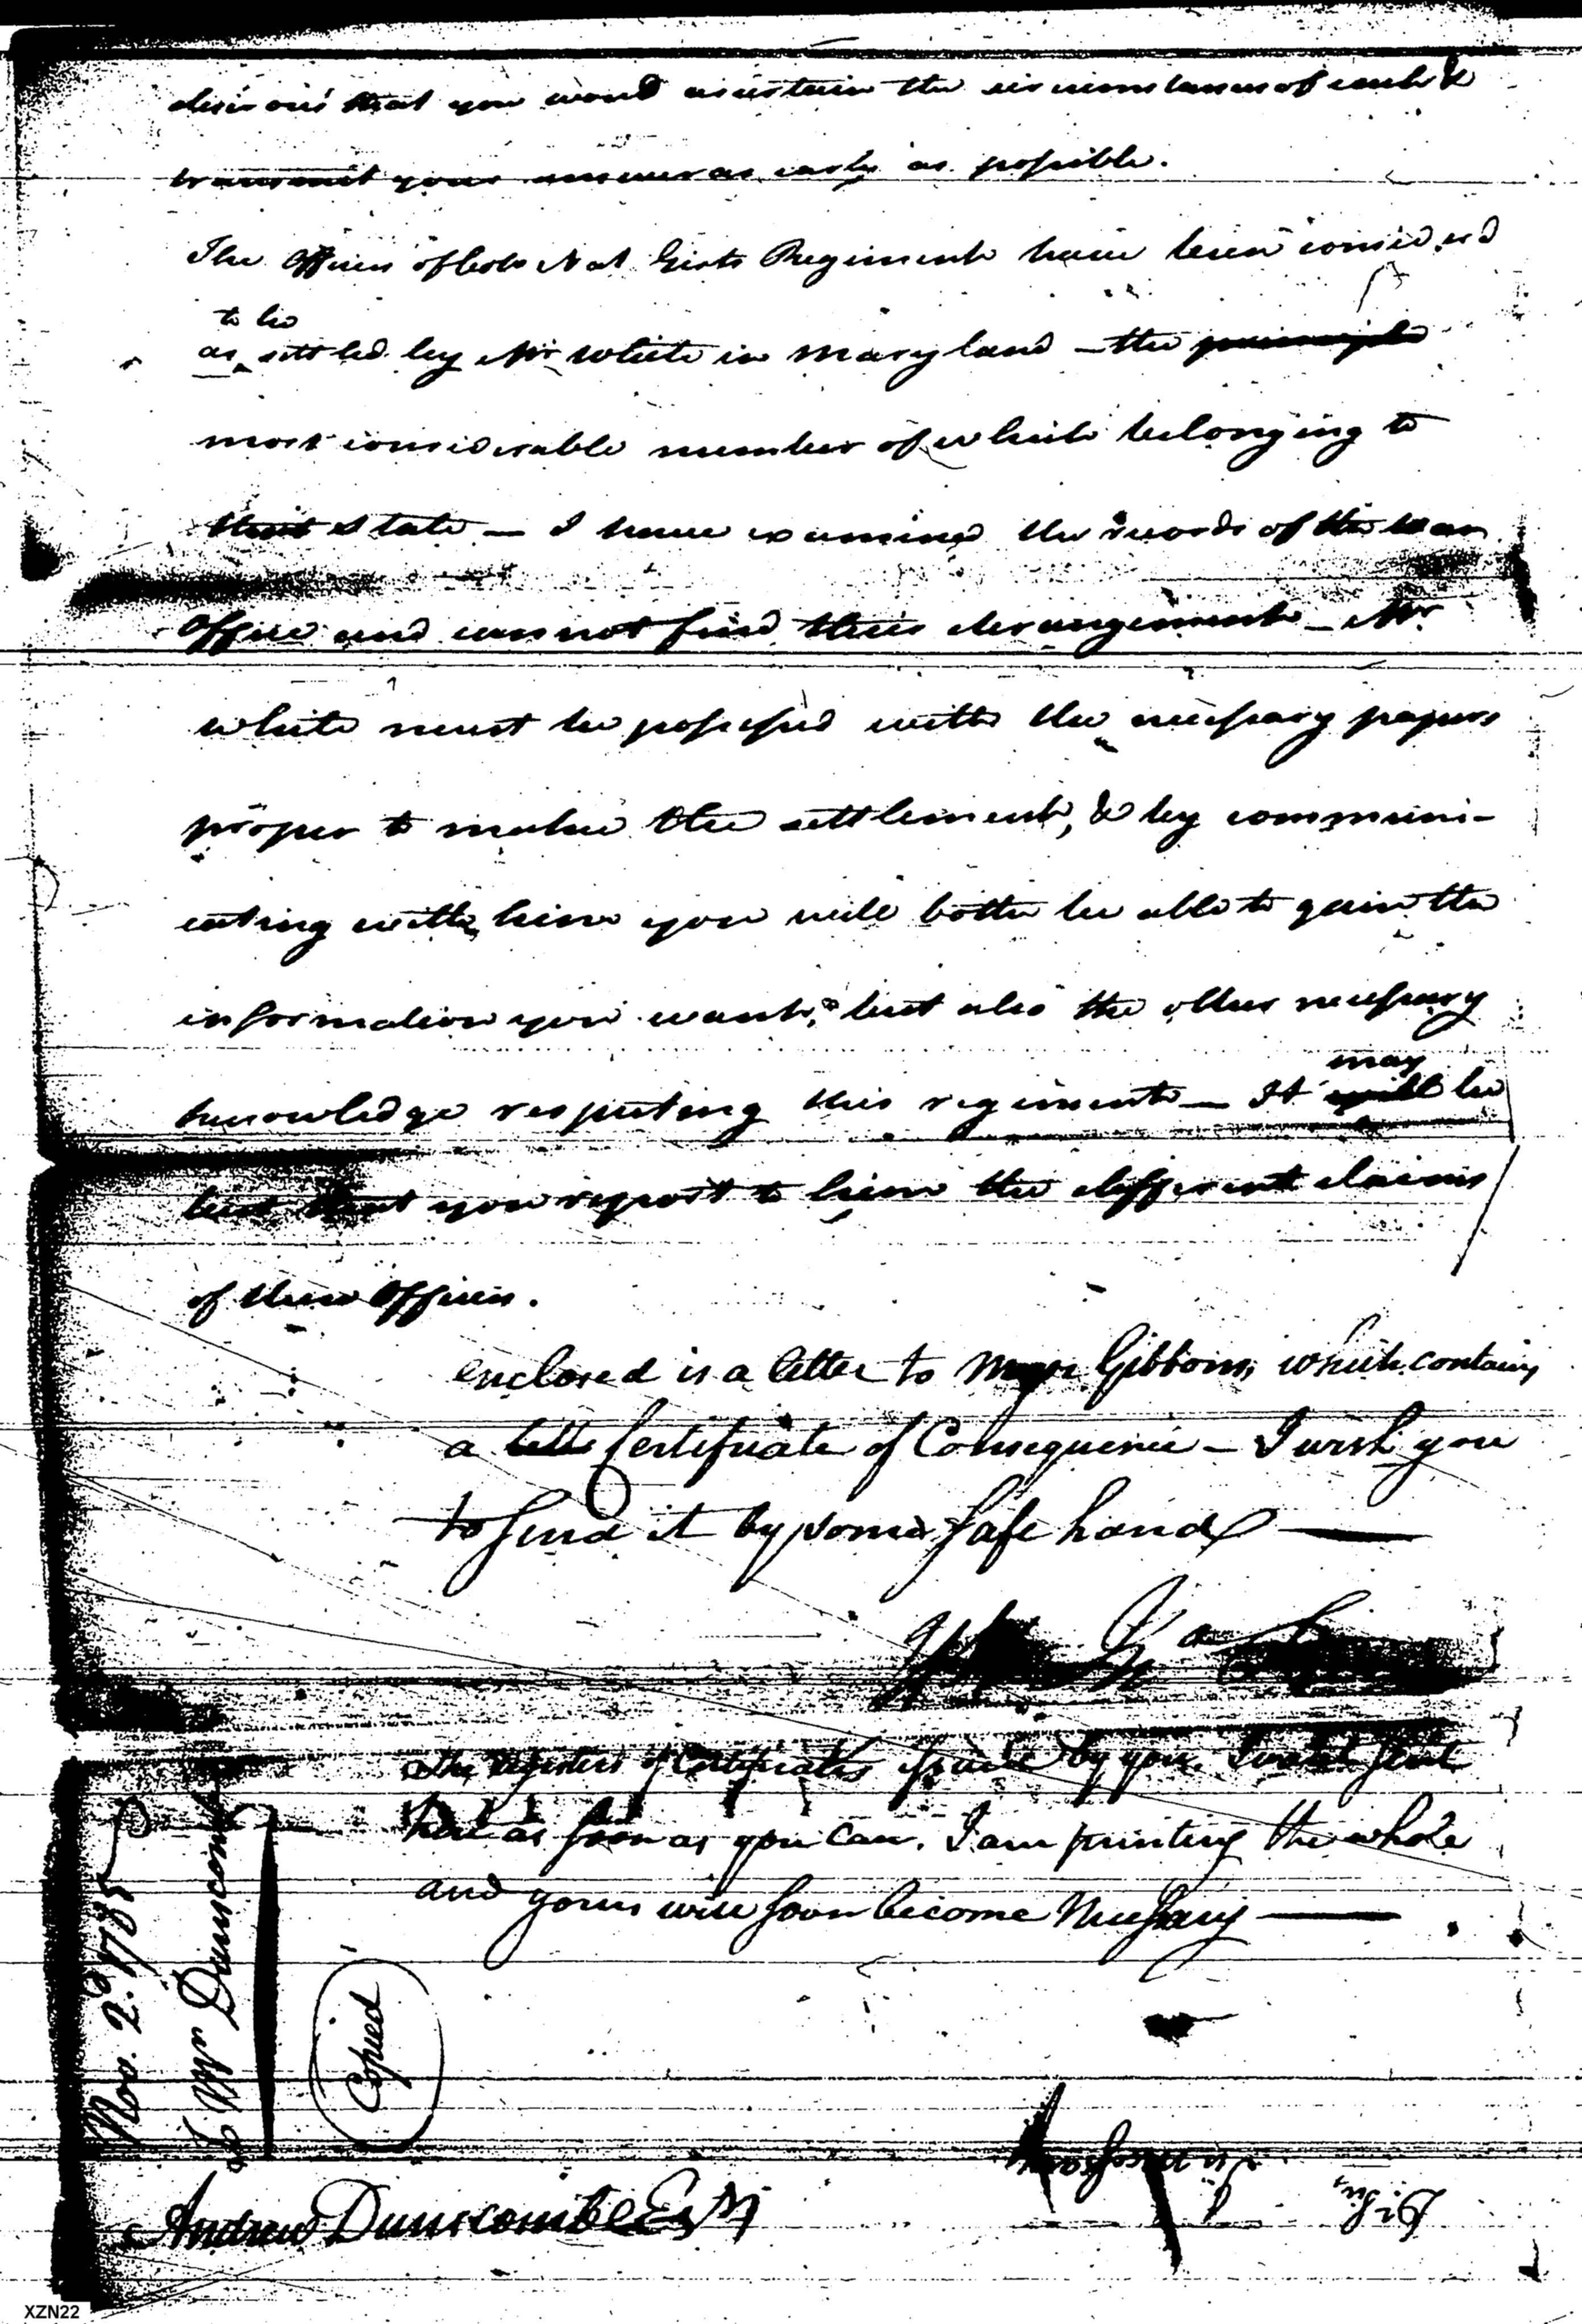 desirous that you would ascertain the circumstances of each &
transmit your answer as early as possible.
The Officers of Colo Nat Gists Regiment have been considered
to be
as settled by Mr White in Maryland – the principle
most considerable number of which belonging to
that State — I have examined the records of the War
Office and cannot find their derangement – Mr
White must be possessed with the necessary papers
proper to make the settlement, & by communi-
cating with him you will both be able to gain the
information you want, but also the other necessary
knowledge respecting this regiment — It will be
may
best that you report to him the different claims
of these Officers.
enclosed is a letter to Major Gibbons, which contains
a Certificate of Consequence – I wish you
to send it by some safe hand —
The registers of Certificates issued by you sent
here as soon as you can. I am printing the whole
and yours will soon become Necessary —
Nov. 2d 1785
Mr Dunscomb
Copied
Andrew Dunscombe Esqr
necessary
Sir
XZN22